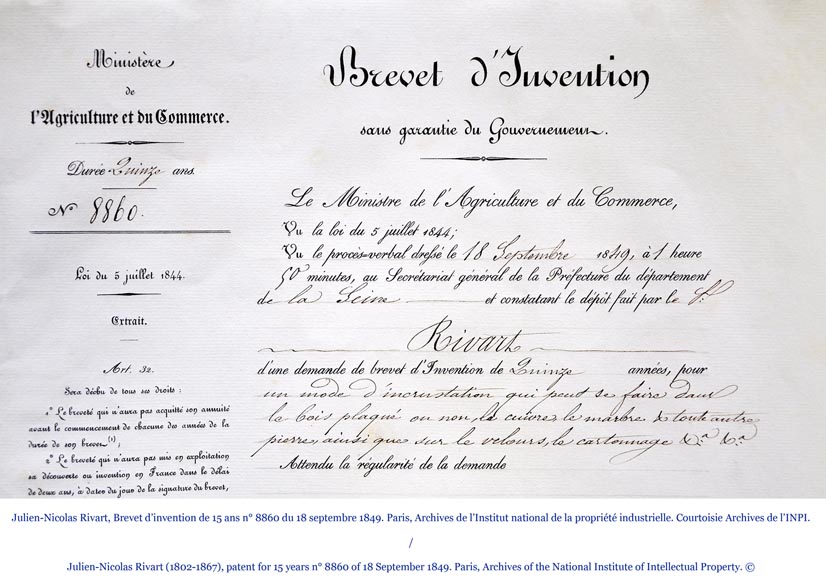 Ministère
de
l'Agriculture et du Commerce.
Durée Quinze ans.
N° 8860.
Loi du 5 juillet 1844.
Extrait.
Art. 32.
Sera déchu de tous ses droits :
1° Le breveté qui n'aura pas acquitté son annuité
avant le commencement de chacune des années de la
durée de son brevet (1);
2° Le breveté qui n'aura pas mis en exploitation
sa découverte ou invention en France dans le délai
de deux ans, à dater du jour de la signature du brevet,
Brevet d'Invention
sans garantie du Gouvernement.
Le Ministre de l'Agriculture et du Commerce,
Vu la loi du 5 juillet 1844;
Vu le procès-verbal dressé le 18 Septembre 1849, à 1 heure
50 minutes, au Secrétariat général de la Préfecture du département
de la Seine et constatant le dépôt fait par le Sr.
Rivart
d'une demande de brevet d'Invention de Quinze années, pour
un mode d'incrustation qui peut se faire dans
le bois plaqué ou non, le cuivre, le marbre & toute autre
pierre, ainsi que sur le velours, le cartonnage &a &a
Attendu la régularité de la demande
Julien-Nicolas Rivart, Brevet d'invention de 15 ans n° 8860 du 18 septembre 1849. Paris, Archives de l'Institut national de la propriété industrielle. Courtoisie Archives de l'INPI.
/
Julien-Nicolas Rivart (1802-1867), patent for 15 years n° 8860 of 18 September 1849. Paris, Archives of the National Institute of Intellectual Property. ©